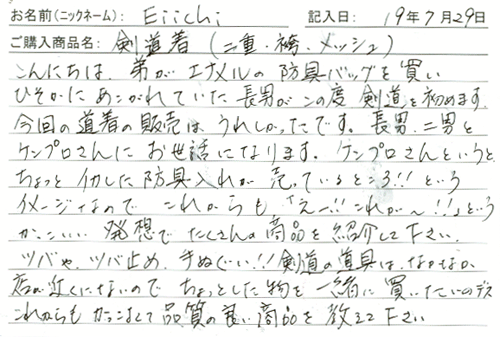 お名前(ニックネーム): Eiichi 記入日: 19年7月29日
ご購入商品名: 剣道着 (二重・袴・メッシュ)
こんにちは、弟がエナメルの防具バッグを買い
ひそかにあこがれていた長男がこの度剣道を初めます
今回の道着の販売は、うれしかったです。長男、二男と
ケンプロさんにお世話になります。ケンプロさんというと、
ちょっとイカした防具入れが売っているところ!!という
イメージなので これからも「えー!!これが〜!!」という
かっこいい発想でたくさんの商品を紹介して下さい。
ツバや、ツバ止め、手ぬぐい!!剣道の道具は、なかなか
店が近くにないので ちょっとした物を一緒に買いたいのデス
これからもかっこよくて品質の良い商品を教えて下さい